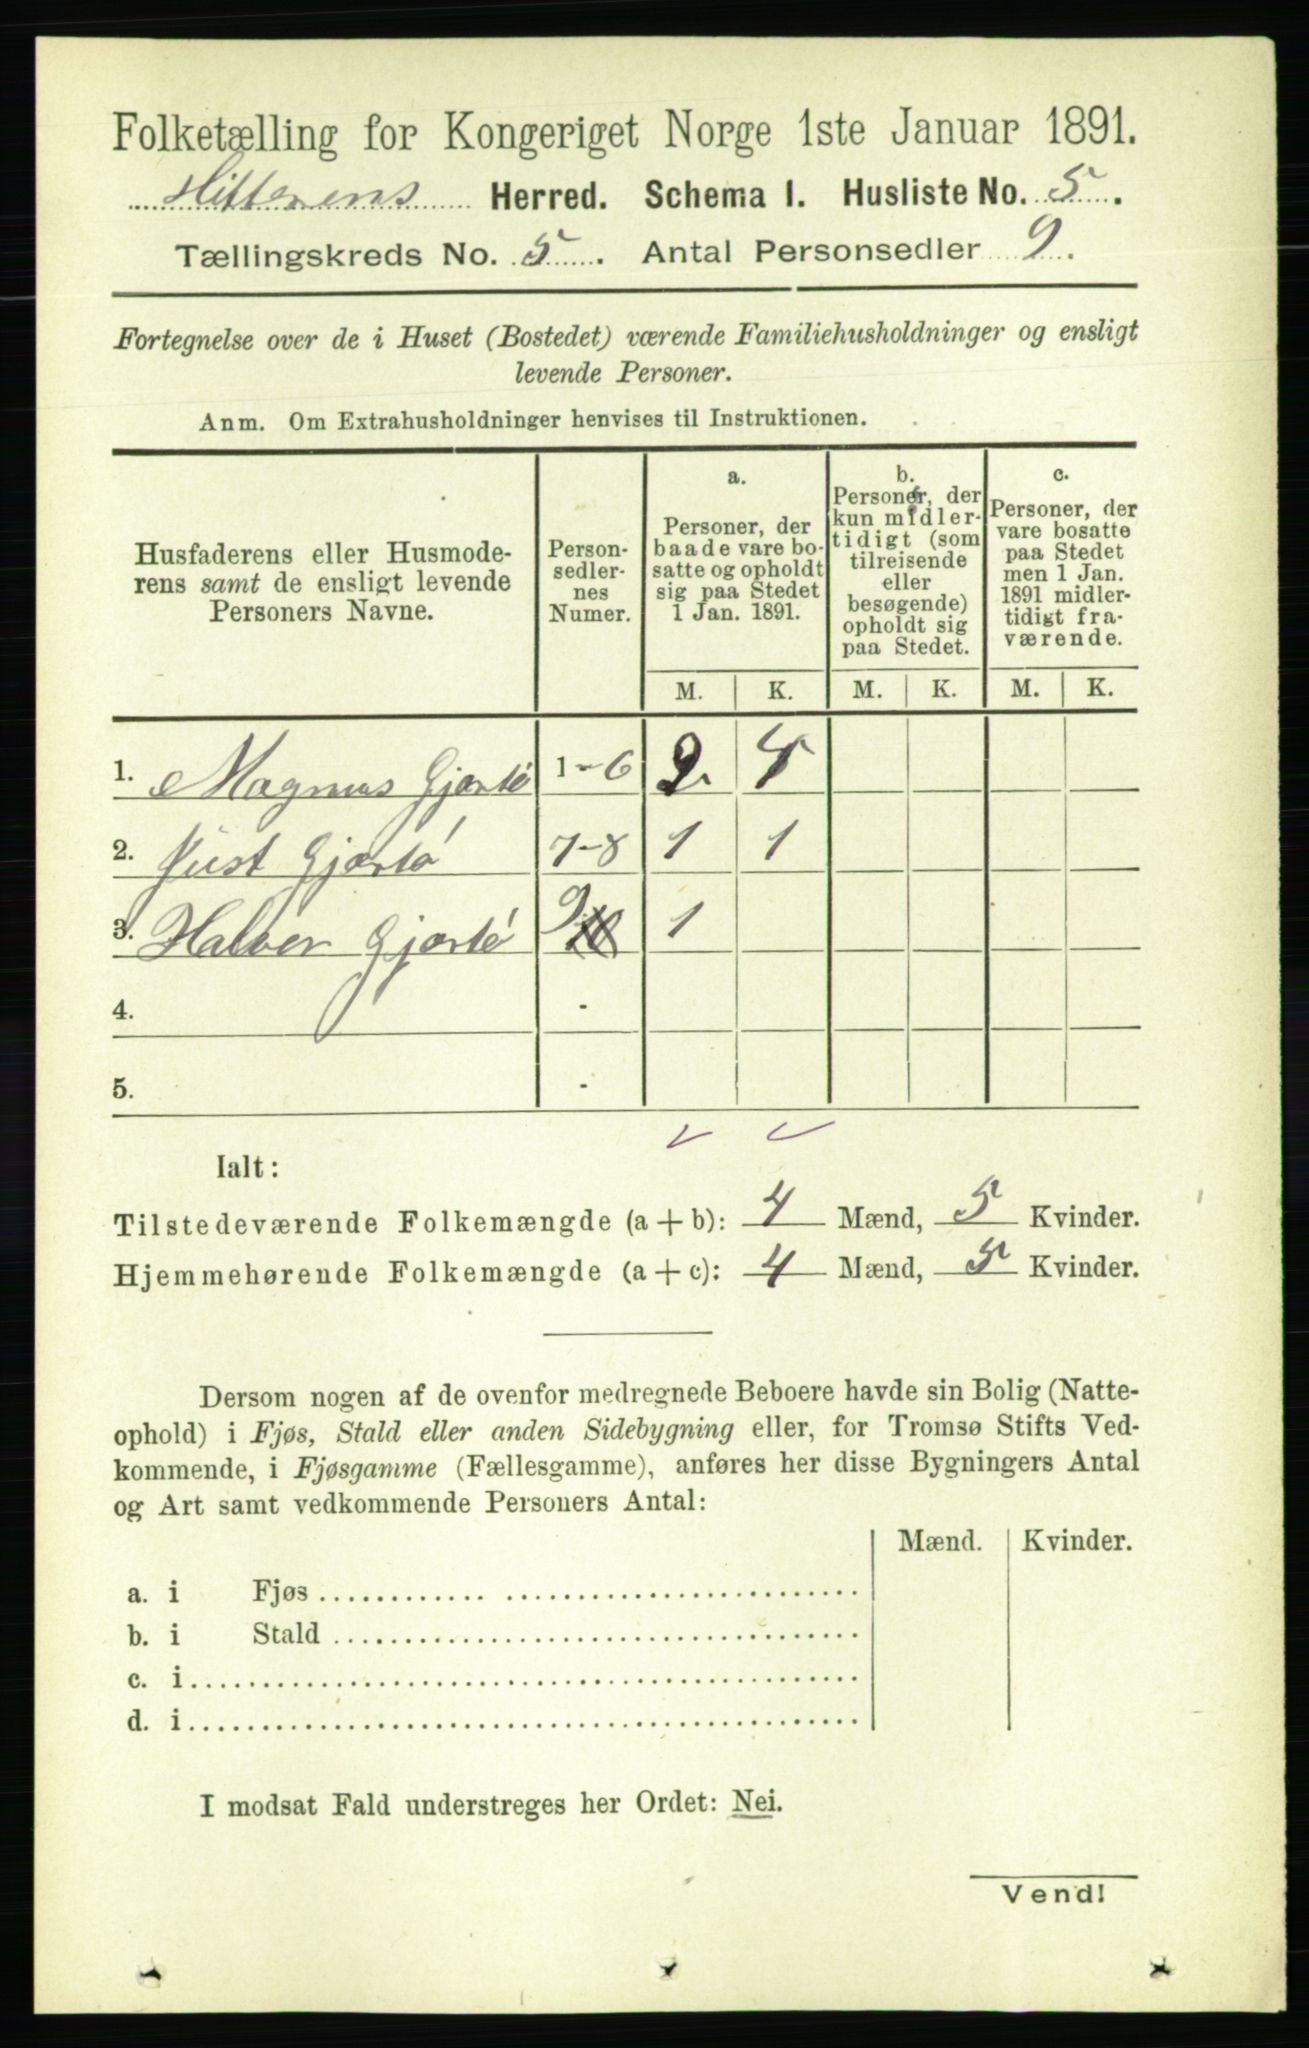 Folketælling for Kongeriget Norge 1ste Januar 1891.
Hitterens Herred. Schema I. Husliste No. 5.
Tællingskreds No. 5. Antal Personsedler 9.
Fortegnelse over de i Huset (Bostedet) værende Familiehusholdninger og ensligt
levende Personer.
Anm. Om Extrahusholdninger henvises til Instruktionen.
Husfaderens eller Husmode-
rens samt de ensligt levende
Personers Navne.
Person-
sedler-
nes
Numer.
a.
Personer, der
baade vare bo-
satte og opholdt
sig paa Stedet
1 Jan. 1891.
b.
Personer, der
kun midler-
tidigt (som
tilreisende
eller
besøgende)
opholdt sig
paa Stedet.
c.
Personer, der
vare bosatte
paa Stedet
men 1 Jan.
1891 midler-
tidigt fra-
værende.
M. K. M. K. M. K.
1. Magnus 1-6 2 4
2. Just 7-8 1 1
3. Halver 9 1
4. -
5. -
Ialt:
Tilstedeværende Folkemængde (a + b): 4 Mænd, 5 Kvinder.
Hjemmehørende Folkemængde (a + c): 4 Mænd, 5 Kvinder.
Dersom nogen af de ovenfor medregnede Beboere havde sin Bolig (Natte-
ophold) i Fjøs, Stald eller anden Sidebygning eller, for Tromsø Stifts Ved-
kommende, i Fjøsgamme (Fællesgamme), anføres her disse Bygningers Antal
og Art samt vedkommende Personers Antal:
Mænd. Kvinder.
a. i Fjøs
b. i Stald
c. i
d. i
I modsat Fald understreges her Ordet: Nei.
Vend!